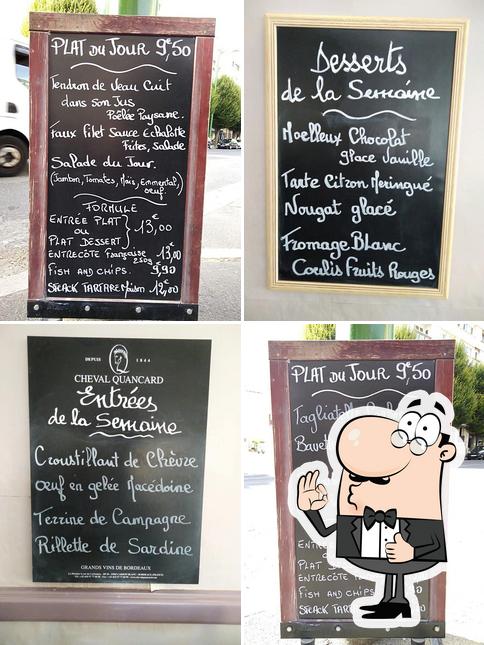 PLAT DU JOUR 9€,50
Tendron de Veau Cuit
dans son Jus
Poêlée Paysanne.
Faux Filet Sauce Echalotte
Frites, Salade
Salade du Jour.
(Jambon, Tomates, Maïs, Emmental,
oeuf.
FORMULE
ENTRÉE PLAT
OU
PLAT DESSERT
13€,00
ENTRECÔTE Française
250g
13€,00
FISH AND CHIPS. 9€,90
STEACK TARTARE Maison 12€,00
Desserts
de la Semaine
Moelleux Chocolat
glace Vanille
Tarte Citron Meringué
Nougat glacé
Fromage Blanc
Coulis Fruits Rouges
DEPUIS 1844
CHEVAL QUANCARD
Entrées
de la Semaine
Croustillant de Chèvre
Oeuf en gelée Macédoine
Terrine de Campagne
Rillette de Sardine
GRANDS VINS DE BORDEAUX
PLAT DU JOUR 9€,50
Tagliatelle
Bavet
ENTR
PLAT
ENTRECÔTE
FISH AND CHIPS
STEACK TART